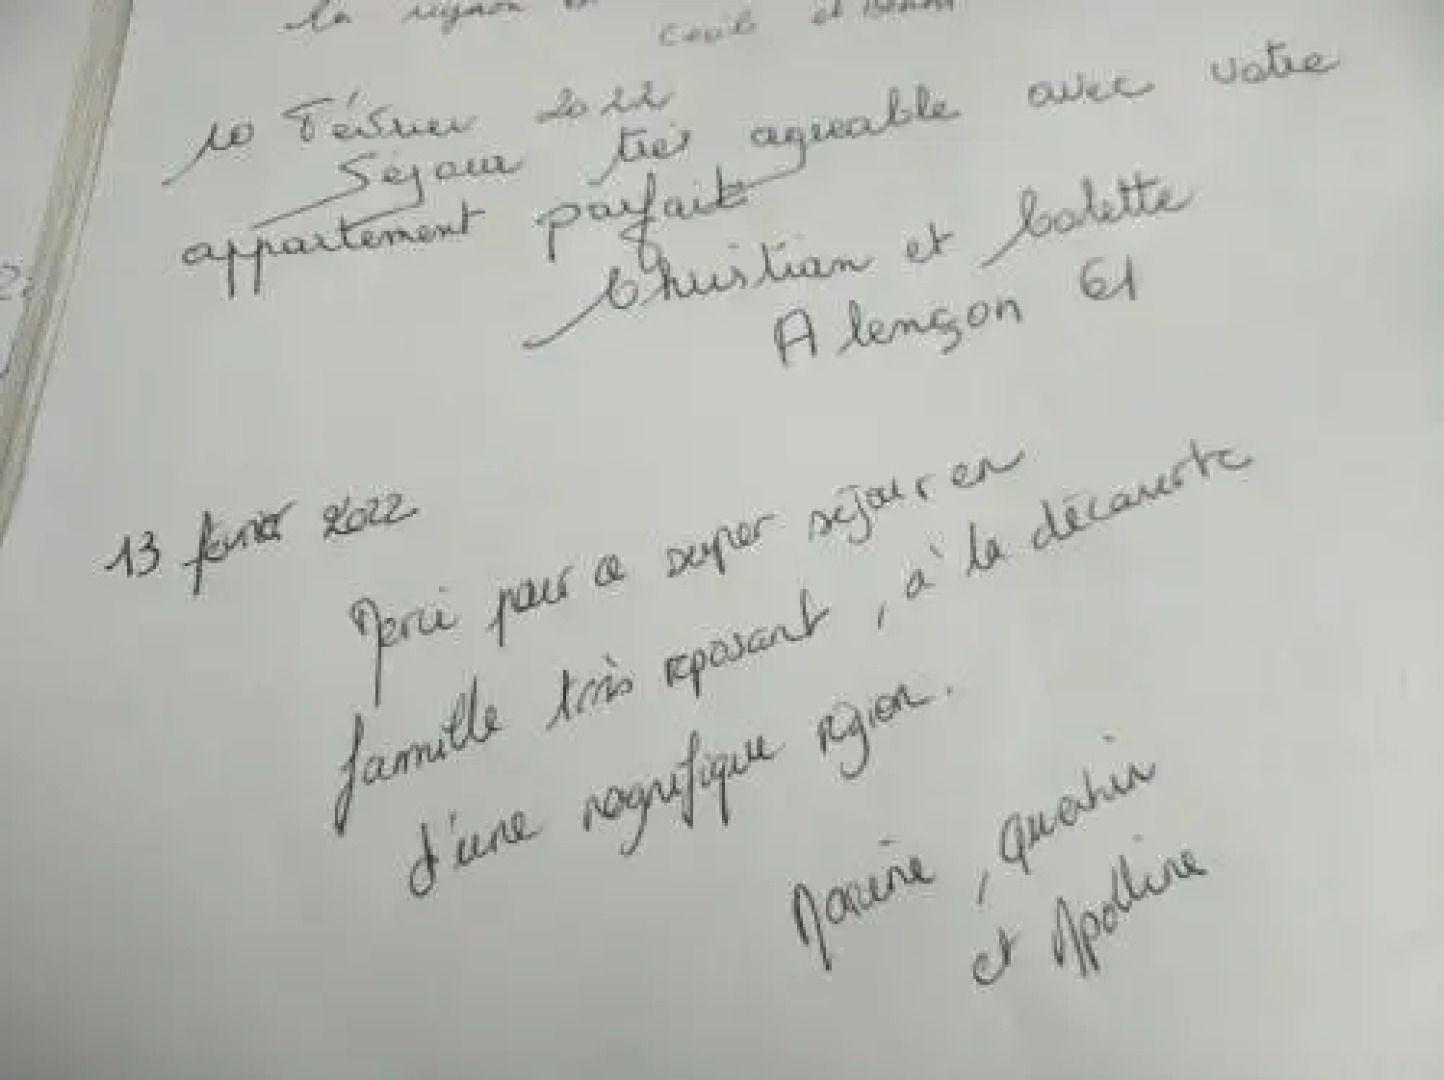 la région
et
10 Février 2022
Séjour très agréable avec votre
appartement parfait
Christian et Colette
Alençon 61
13 février 2022
Merci pour ce super séjour en
famille très reposant, à la découverte
d'une magnifique région.
Maxime, Quentin
et Apolline